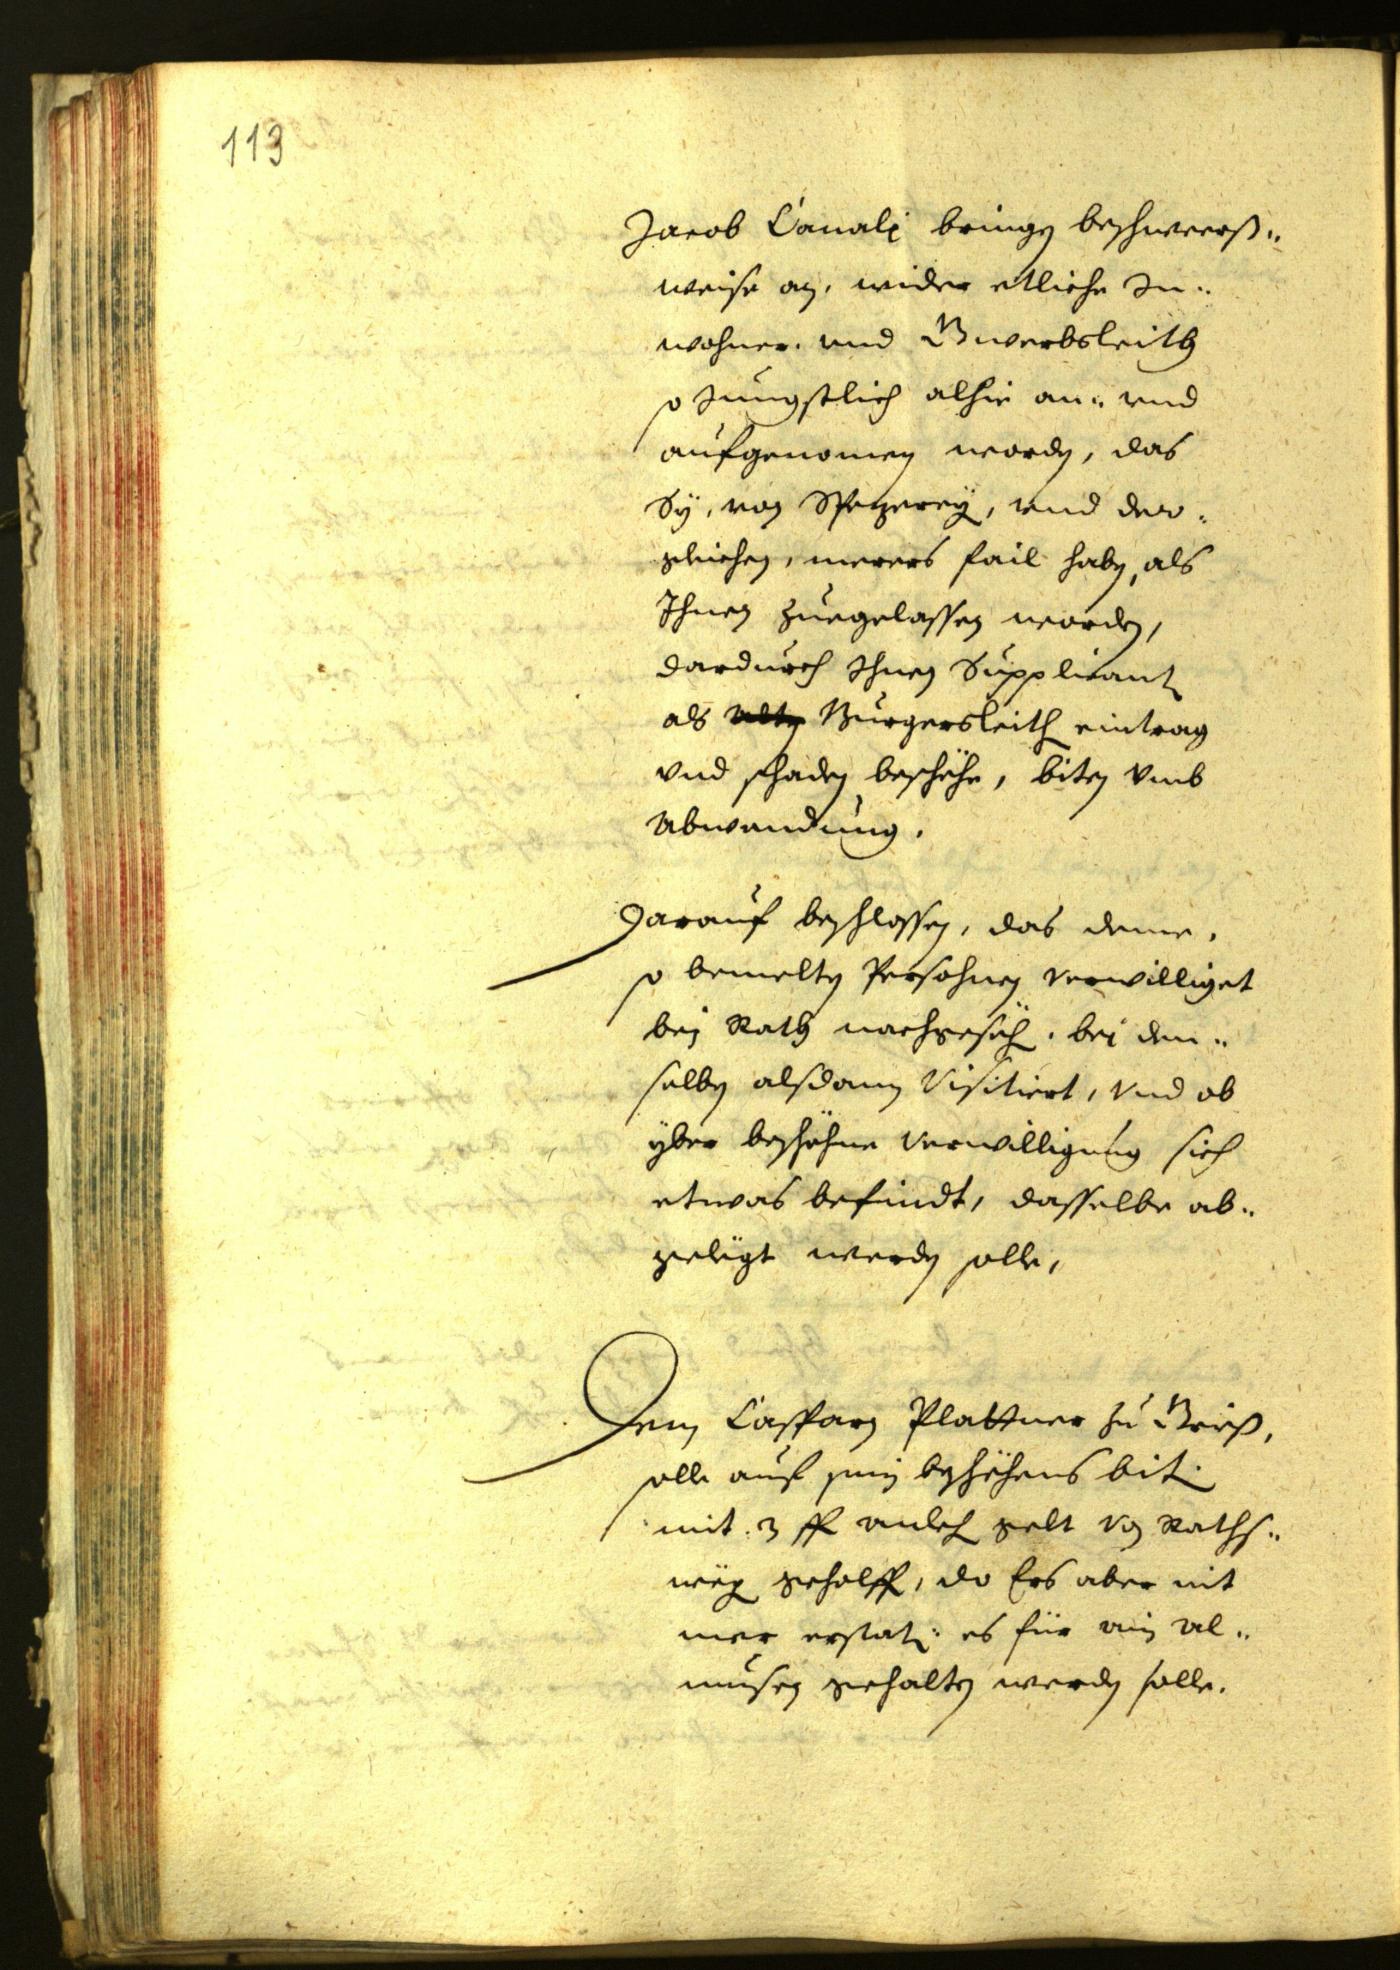 113
Jacob Canali bringen beschwerß¬
weise an, wider etliche In¬
wohner und Gwerbsleith
so Jüngstlich alhie an¬ und
aufgenomen worden, das
Sÿ, von Spezereÿ, und der¬
gleichen, merers fail haben, als
Ihnen zuegelassen worden,
dardurch Ihnen Supplicant
als alten Burgersleith eintrag
und schaden beschehe, biten umb
Abwendung.
Darauf beschlossen, das deme,
so bemelten Persohnen verwilliget
bei Rath nachgesech. bei den¬
selben alsdann visitiert, und ob
yber beschehne verwilligung sich
etwas befindt, dasselbe ab¬
gelegt werden solle,
Dem Casparn Plattner zu Grieß,
solle auf sein beschehens bit.
mit 3 ff anlech gelt von Raths¬
weg geholff, do Ers aber nit
mer erstat: es für ain Al¬
musen gehalten werden solle.